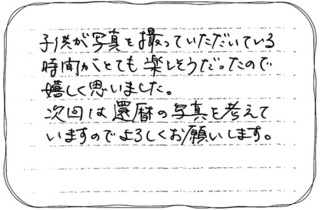 子供が写真を撮っていただいている
時間がとても楽しそうだったので
嬉しく思いました。
次回は還暦の写真を考えて
いますのでよろしくお願いします。